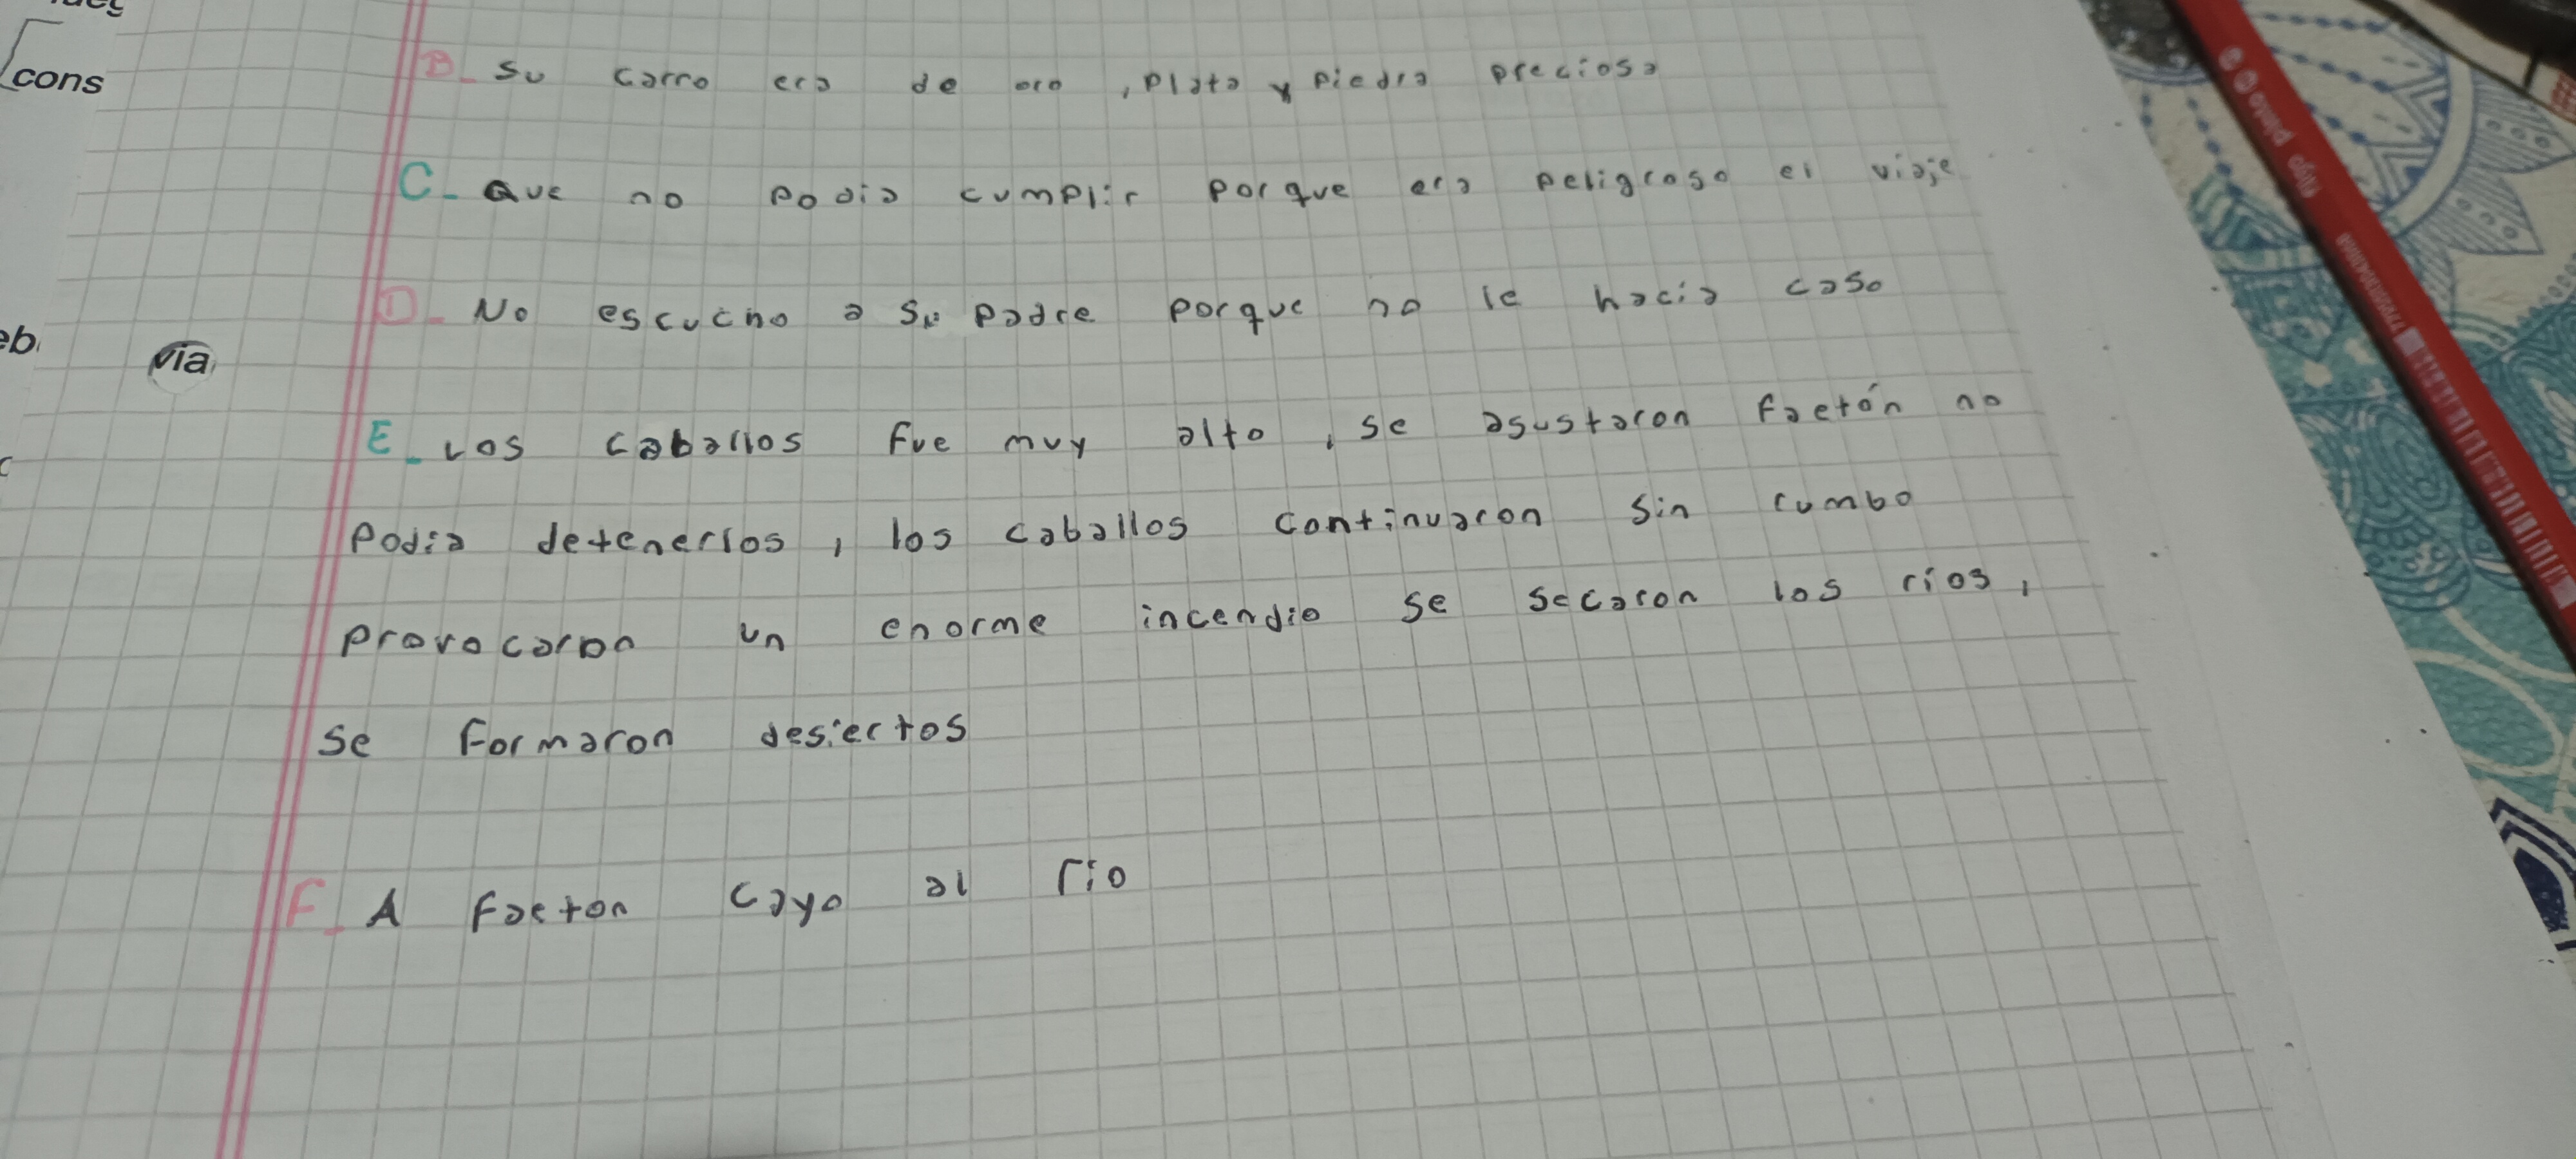 cons
B_ Su carro era de oro , plata y piedra preciosa
C_ Que no podia cumplir porque era peligroso el viaje
D_ No escucho a su padre porque no le hacia caso
via
E_ Los caballos fue muy alto , se asustaron Faetón no
podia detenerlos , los caballos continuaron sin rumbo
provocaron un enorme incendio se secaron los ríos ,
se formaron desiertos
F_ A Faeton cayo al rio